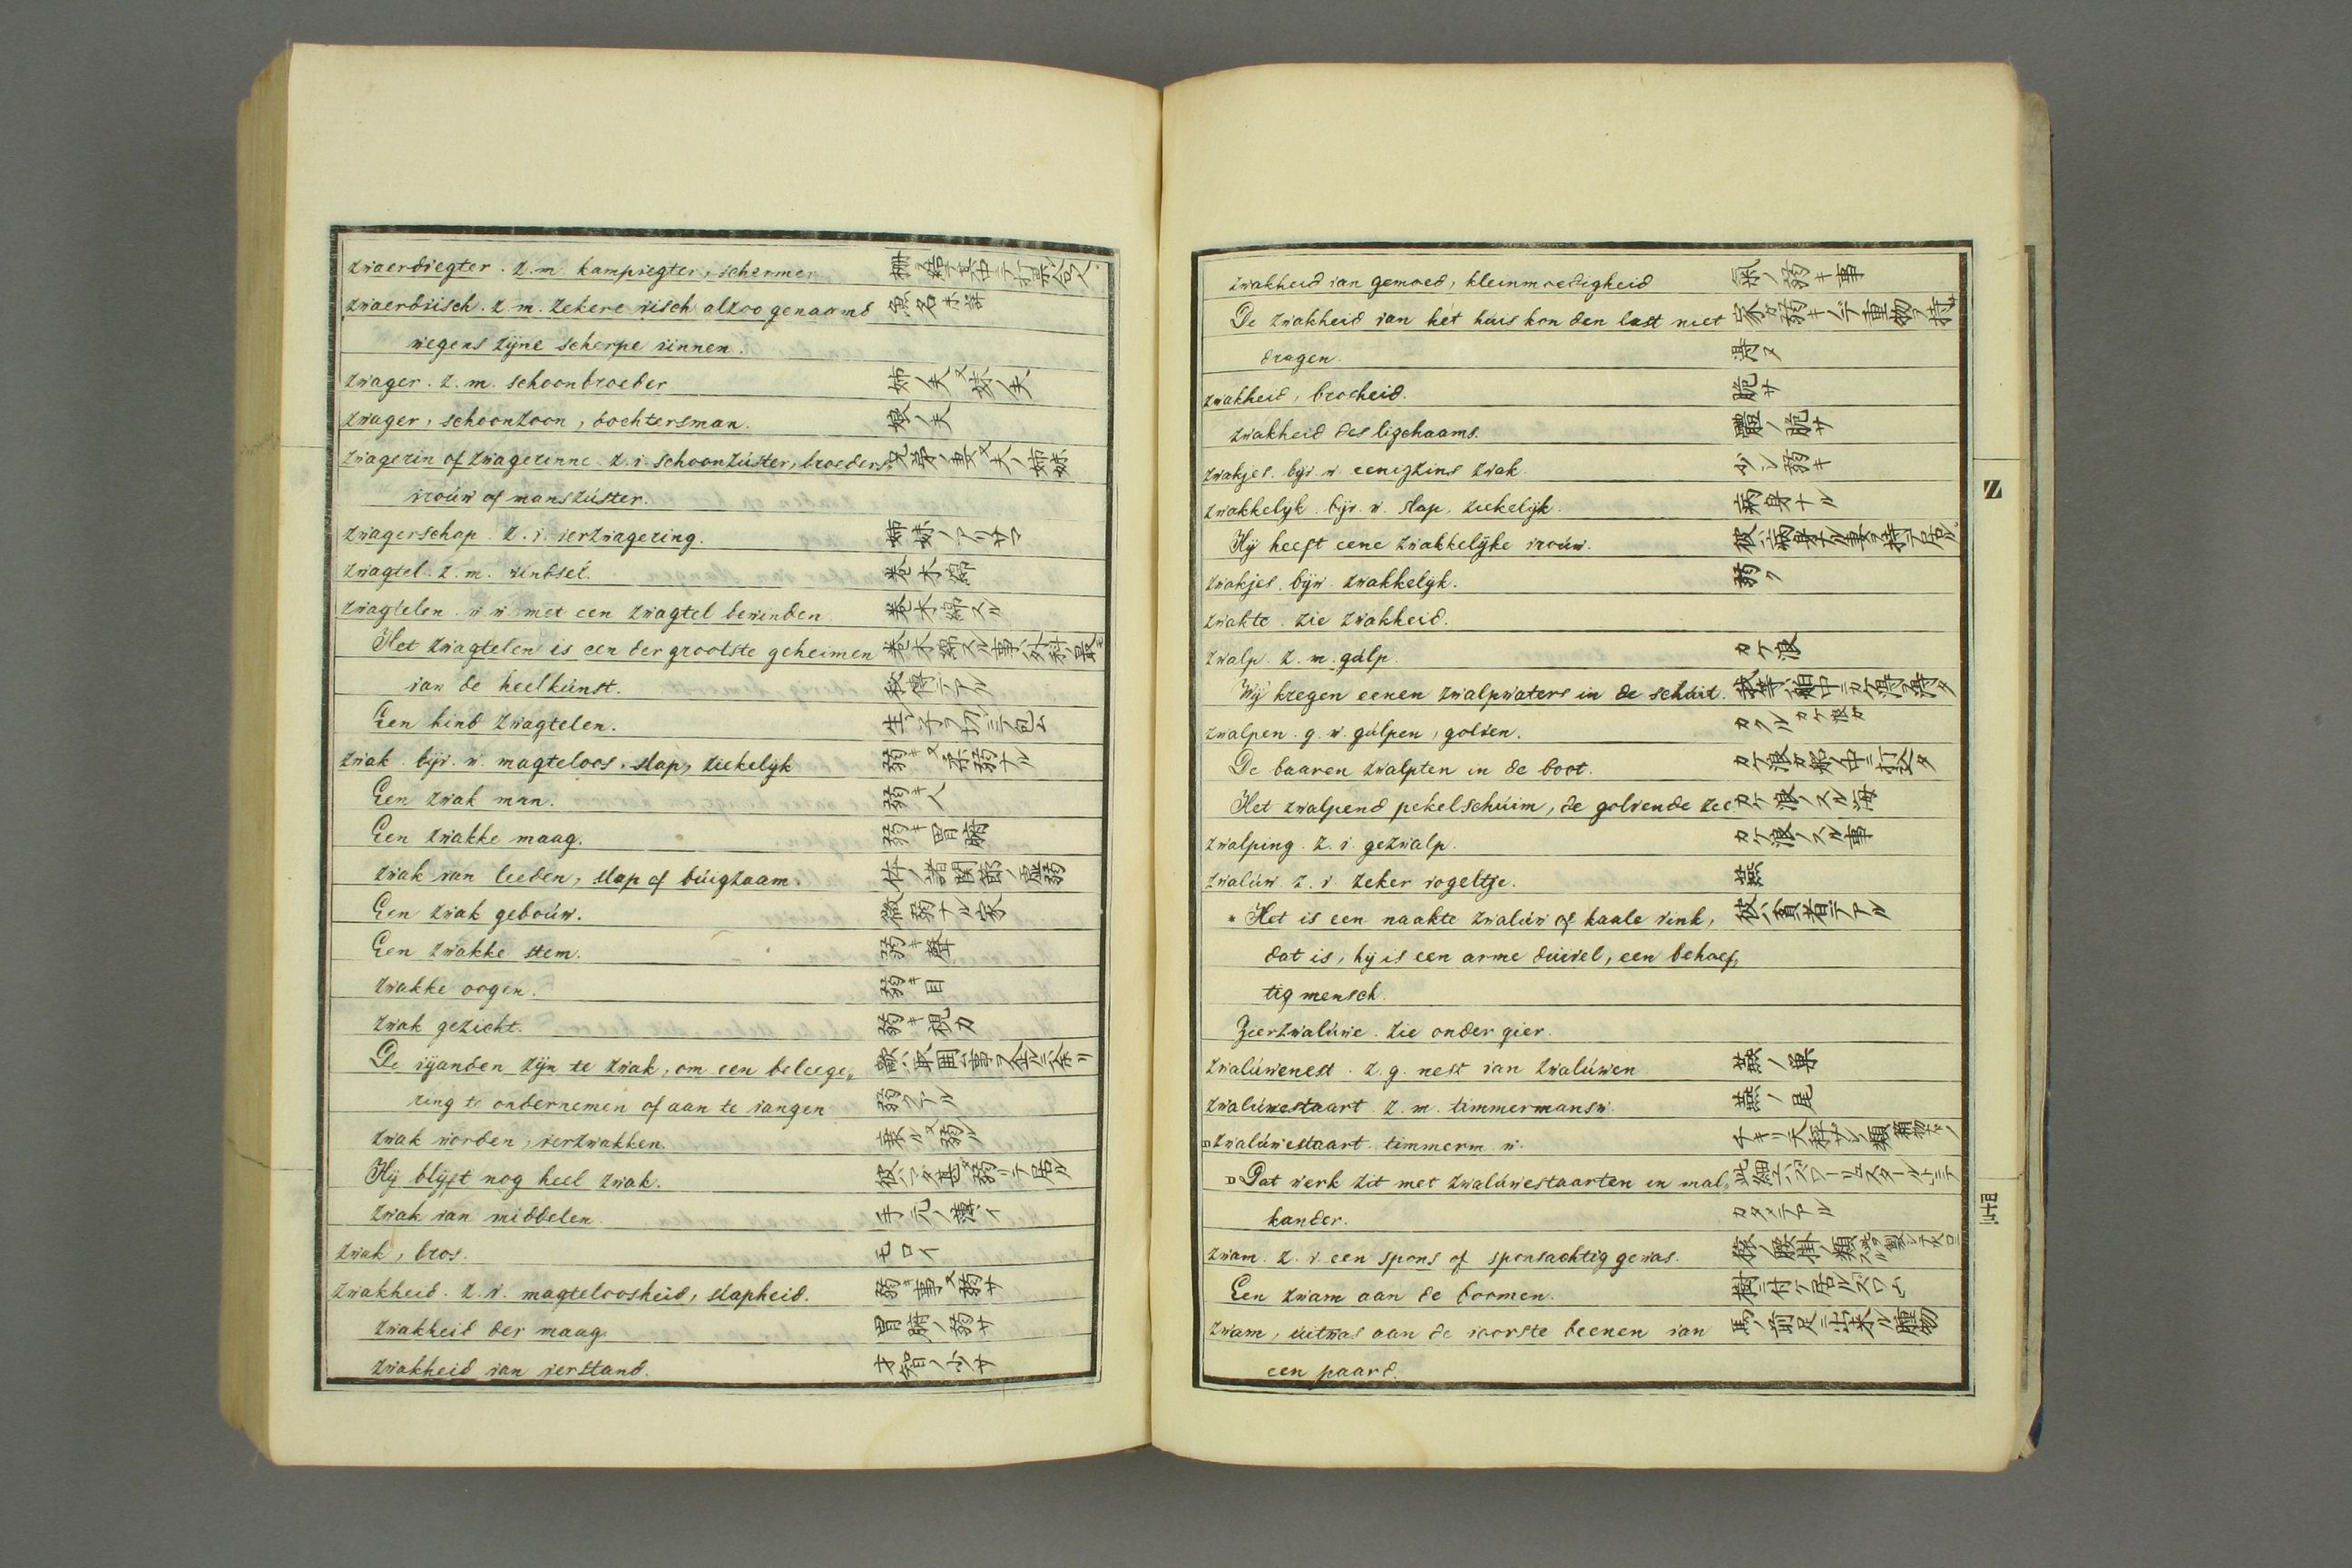 zwaerdvegter . z. m. kampvegter, schermer
zwaerdvisch . z. m. zekere visch alzoo genaamd 魚名
wegens zijne scherpe vinnen.
zwager . z. m. schoonbroeder 姉ノ夫又妹ノ夫
zwager, schoonzoon, dochtersman. 娘ノ夫
zwagerin of zwagerinne z. v. schoonzúster, broeders 兄弟ノ妻又夫ノ姉妹
vroúw of manszúster.
zwagerschap . z. v. verzwagering. 姉妹ノアリサマ
zwagtel . z. m. windsel. 巻木綿
zwagtelen . w. w. met een zwagtel bewinden 巻木綿スル
Het zwagtelen is een der grootste geheimen 巻木綿スル事ハ外科ノ最モ
van de heelkúnst. 秘傳デアル
Een kind zwagtelen.
zwak . bijv. w. magteloos, slap, ziekelijk 弱キ又柔弱ナル
Een zwak man. 弱キ人
Een zwakke maag. 弱キ胃腑
zwak van leeden, slap of búigzaam. 体ノ諸関節ノ虚弱
Een zwak geboúw. 微弱ナル家
Een zwakke stem. 弱キ聲
zwakke oogen. 弱キ目
zwak gezicht. 弱キ視力
De vijanden zijn te zwak, om een beleege„ 敵ハ取囲事ヲ企ルニ余リ
ring te ondernemen of aan te vangen 弱クアル
zwak worden, verzwakken. 衰ル又弱ル
Hij blijft nog heel zwak. 彼ハマタ甚タ弱リテ居ル
zwak van middelen 手元ノ薄イ
zwak, bros. モロイ
zwakheid . z. v. magteloosheid, slapheid. 弱キ事又弱サ
zwakheid der maag. 胃腑ノ弱サ
zwakheid van verstand. 才智ノ少サ
zwakheid van gemoed, kleinmoedigheid 氣ノ弱キ事
De zwakheid van het húis kon den last niet 家カ弱キノデ重物ヲ持
dragen. 得ヌ
zwakheid, brosheid. 脆サ
zwakheid des ligchaams. 體ノ脆サ
zwakjes . bijv. w. eenigzins zwak. 少シ弱キ
zwakkelijk . bijv. w. slap, ziekelijk. 病身ナル
Hij heeft eene zwakkelijke vroúw. 彼ハ病身ナル妻ヲ持テ居ル
zwakjes . bijw. zwakkelijk. 弱ク
zwakte . zie zwakheid.
zwalp . z. m. gúlp. カケ浪
Wij kregen eenen zwalpwaters in de schuit.
zwalpen . g. w. gúlpen, golven. カクル カケ浪カ
De baaren zwalpten in de boot. カケ浪カ船ノ中ニ打込タ
Het zwalpend pekelschúim, de golvende zee カケ浪ノスル海
zwalping . z. v. gezwalp. カケ浪ノスル事
zwalúw . z. v. zeker vogeltje. 燕
* Het is een naakte zwalúw of kaale vink, 彼ハ貧者デアル
dat is, hij is een arme duivel, een behoef„
tig mensch.
Gierzwalúwe . zie onder gier.
zwalúwenest . z. g. nest van zwalúwen 燕ノ巣
zwalúwestaart . z. m. timmermansw. 燕ノ尾
zwalúwestaart . timmerm. w.
Dat werk zit met zwalúwestaarten in mal„
kander.
zwam . z. v. een spons of sponsachtig gewas. 猿ノ腰掛ノ類
Een zwam aan de boomen. 樹ニ付ケ居ルズワム
zwam, uitwas aan de voorste beenen van 馬ノ前足ニ出来ル腫物
een paard.
Z
三十四